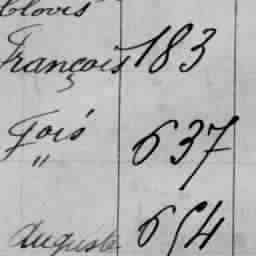 Clovis
François 183
Fois 637
"
Auguste 654